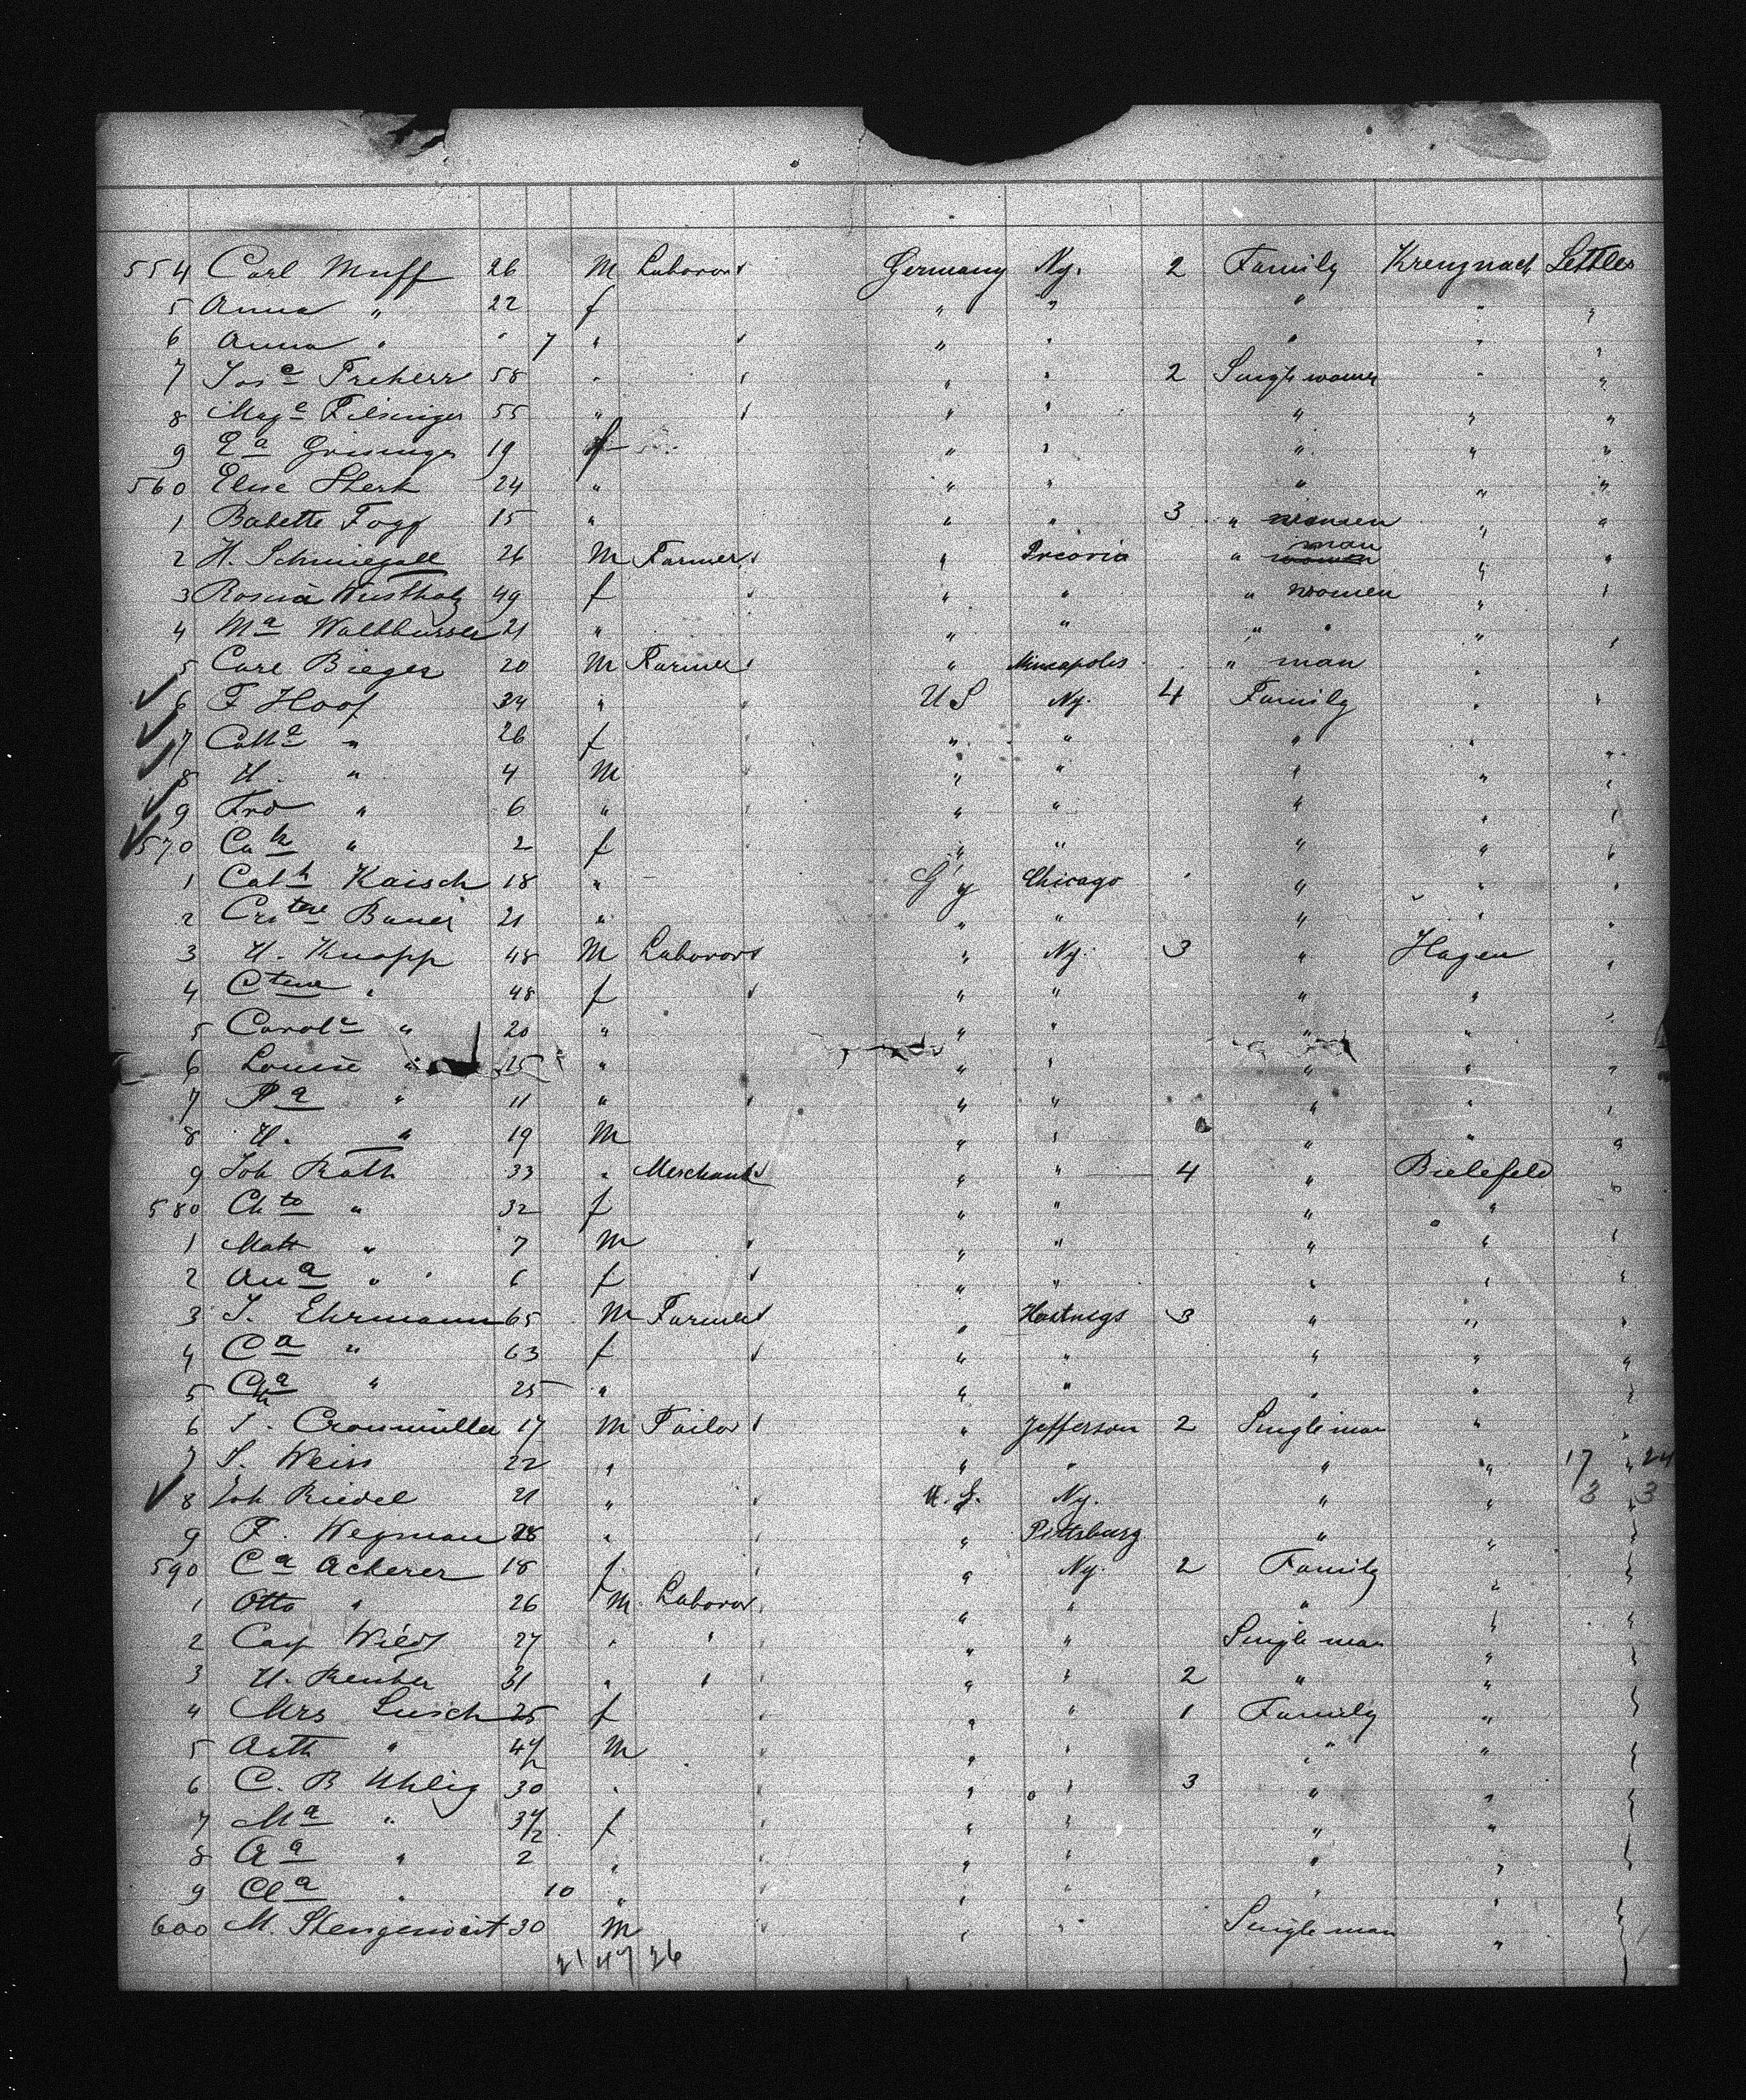 554 Carl Muff 26 M Laborer Germany Ny. 2 Family Kreuznach Settler
5 Anna " 22 f " " " " "
6 Anna " " 7 " " " " " "
7 Jos a Freherr 58 " " " 2 Single women " "
8 Mag a Filsinger 55 " " " " " "
9 E a Grisinger 19 f " " " " "
560 Elise Sterk 24 " " " " " "
1 Babette Fogg 15 " " " 3 " women " "
2 H. Schmiegall 26 M Farmer " Preoria " man " "
3 Rosina Wustholz 49 f " " " women " "
4 M a Waldbusser 21 " " " " " " "
5 Carl Bieger 20 M Farmer " Mineapolis " man " "
6 F Hoof 34 " U S Ny. 4 Family " "
7 Cath a " 26 f " " " " "
8 H. " 4 M " " " " "
9 Frd " 6 " " " " " "
570 Cath " 2 f " " " " "
1 Cath Kaisch 18 " G'y Chicago " " " "
2 Cristine Bauer 21 " " " " " "
3 H. Knapp 48 M Laborer " Ny. 3 " Hagen "
4 Ctine " 48 f " " " " "
5 Carol e " 20 " " " " " "
6 Louise " 15 " " " " " "
7 R a " 11 " " " " " "
8 H. " 19 M " " " " "
9 Joh Rath 33 " Merchant " " 4 " Bielefeld "
580 Ch te " 32 f " " " " "
1 Math " 7 M " " " " "
2 An a " 6 f " " " " "
3 J. Ehrmann 65 M Farmer " Hastings 3 " " "
4 C a " 63 f " " " " "
5 Ch a " 25 " " " " " "
6 J. Cronmüller 17 M Tailor " Jefferson 2 Single man " "
7 S. Weiss 22 " " " " " 17 " 24
8 Joh Riedel 21 " U. S. Ny. " " 3 3
9 F. Wegman 28 " " Pittsburg " "
590 C a Acherer 18 f " Ny. 2 Family "
1 Otto " 26 M Laborer " " " "
2 Cay Wild 27 " " " " Single man "
3 H. Reuber 31 " " " " 2 " "
4 Mrs Lusch 25 f " " 1 Family "
5 Arth " 4 1/2 M " " " "
6 C. B Uhlig 30 " " " 3 " "
7 M a " 3 1/2 f " " " "
8 A a " 2 " " " " "
9 Cl a " 10 " " " " "
600 M. Stengenwert 30 M " " Single man "
21 47 26